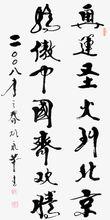 奥运圣火到北京
骄傲中国齐欢腾
二〇〇八年之春